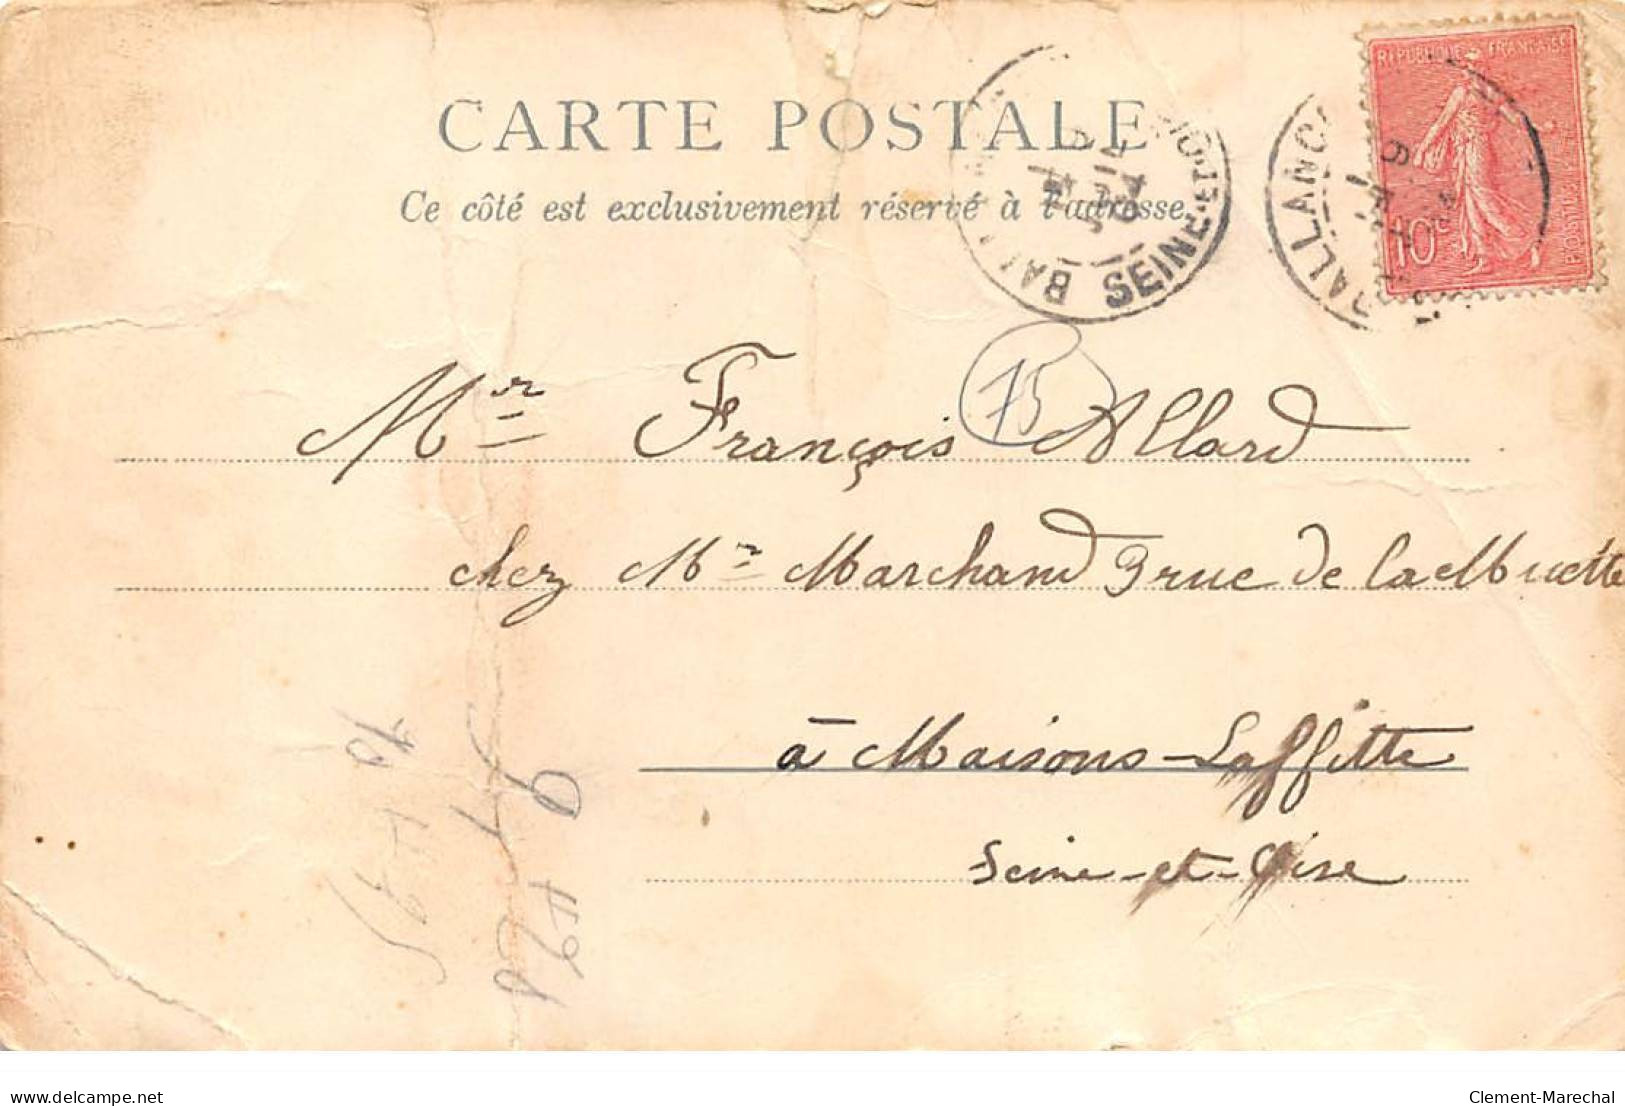 CARTE POSTALE
Ce côté est exclusivement réservé à l'adresse.
BAL
SEINE-ET-OI
BALLANCO
REPUBLIQUE FRANÇAISE
POSTES
10c
75
Mr François Allard
chez Mr Marchand 3 rue de La Muette
à Maisons-Laffitte
Seine-et-Oise
10
delcampe.net
Clement-Marechal